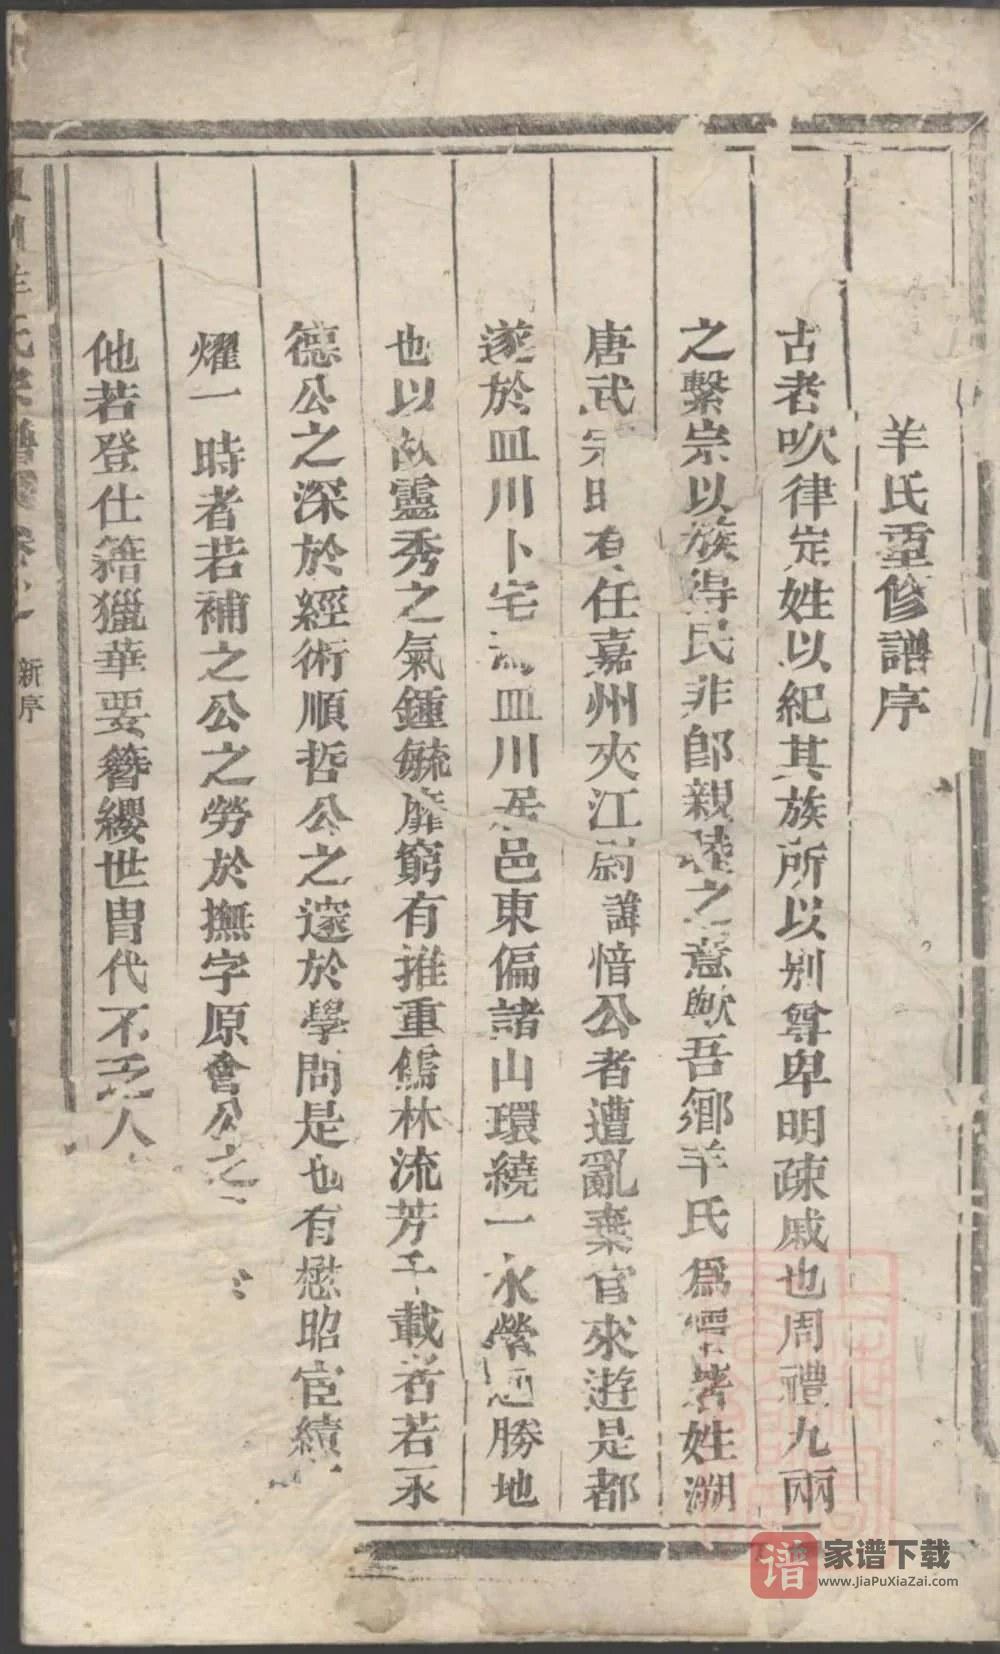 羊氏重修譜序
古者吹律定姓以紀其族所以别尊卑明疎戚也周禮九兩
之繫宗以族得民非卽親睦之意歟吾鄉羊氏爲望著姓溯
唐武宗時有任嘉州夾江尉諱愔公者遭亂棄官來遊是都
遂於皿川卜宅焉皿川居邑東偏諸山環繞一水縈迴勝地
也以故靈秀之氣鍾毓靡窮有推重儒林流芳千載者若永
德公之深於經術順哲公之邃於學問是也有懋昭宦績
燿一時者若補之公之勞於撫字原會公之
他若登仕籍獵華要簪纓世胄代不乏人
羊氏宗譜 卷之
新序
家谱下载
www.JiaPuXiaZai.com
谱